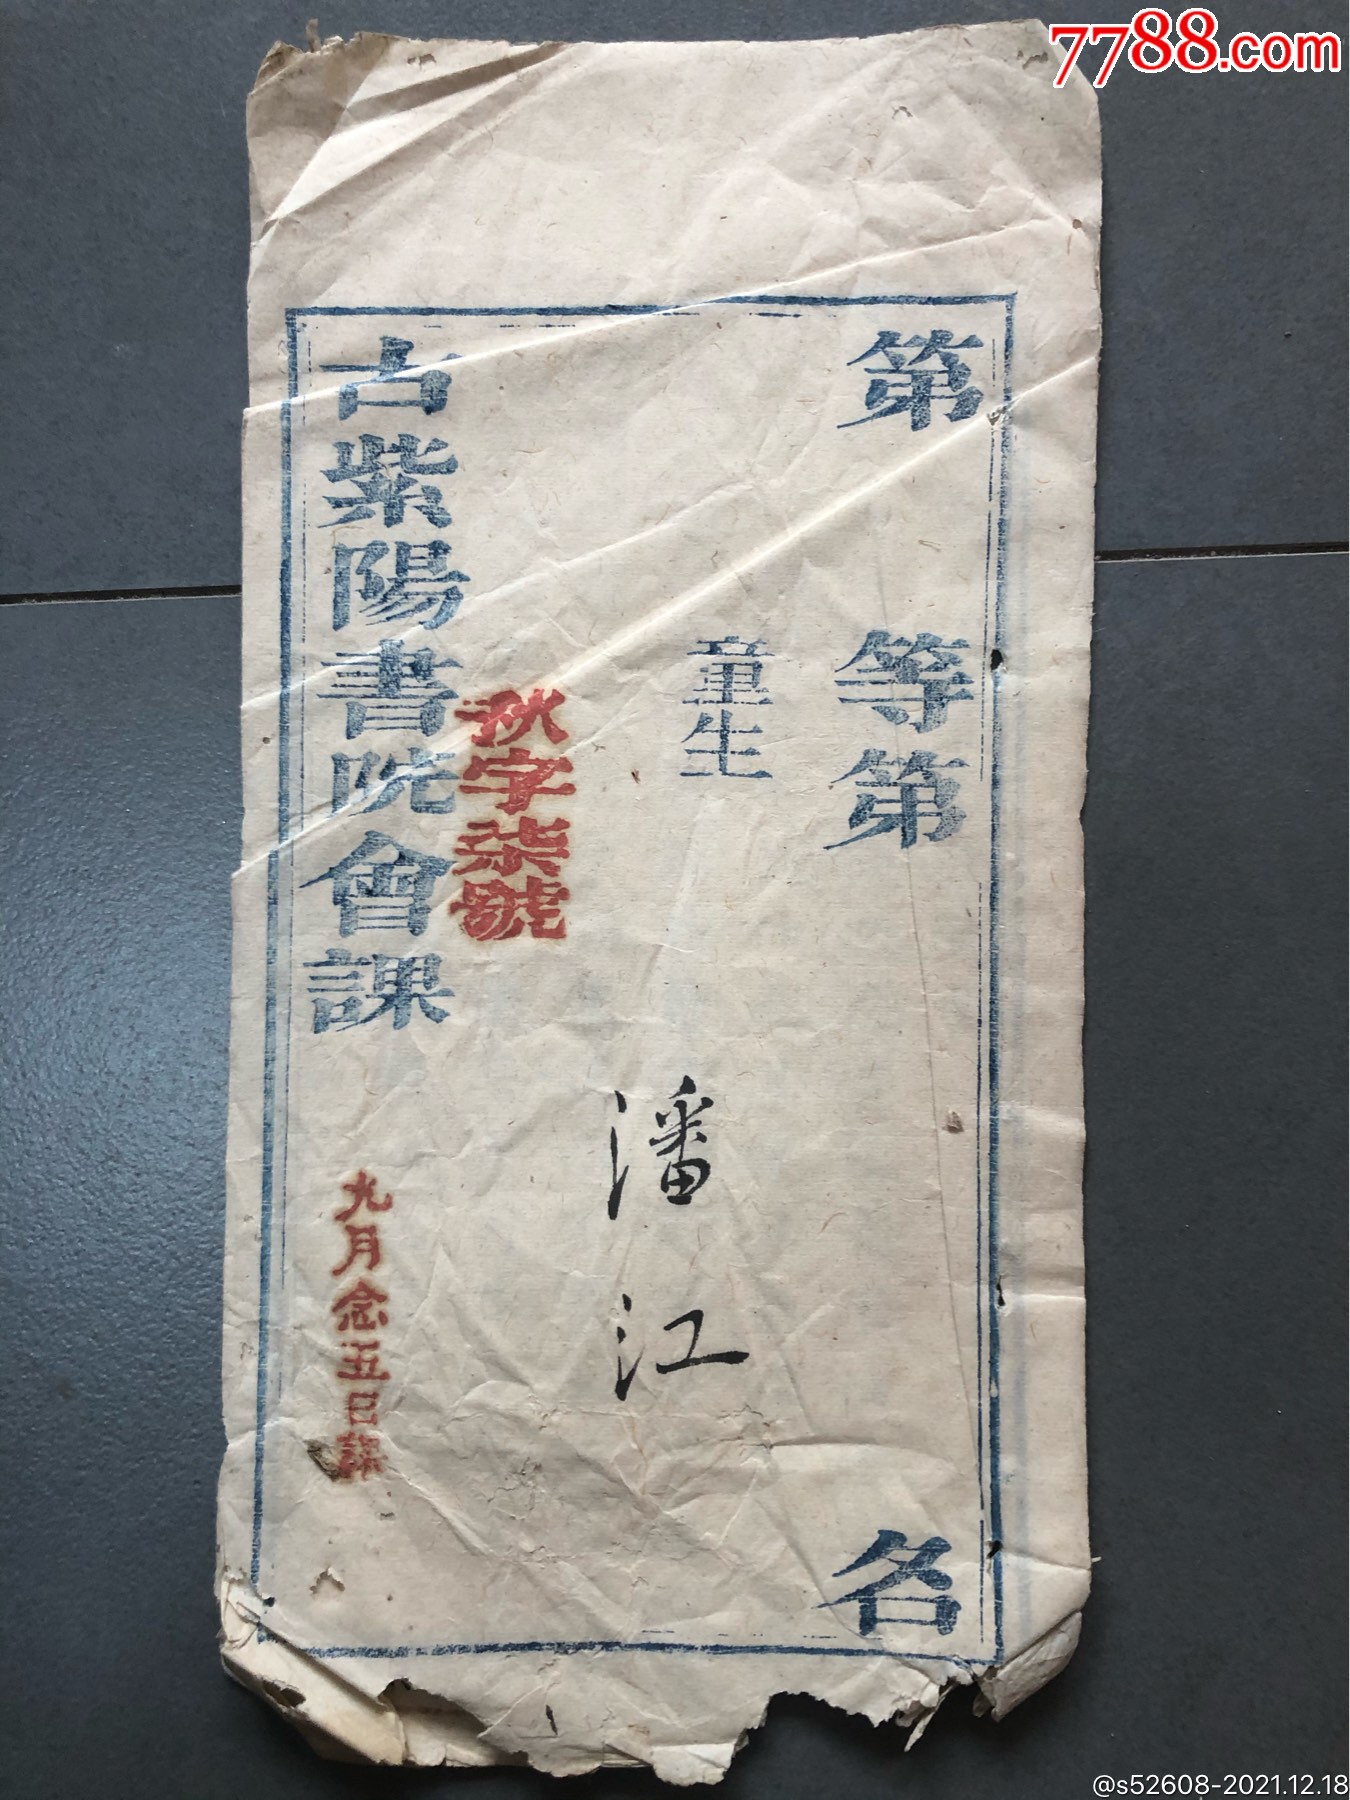 7788.com
第 等第 名
童生 潘江
秋字柒號
古紫陽書院會課
九月念五日課
@s52608-2021.12.18